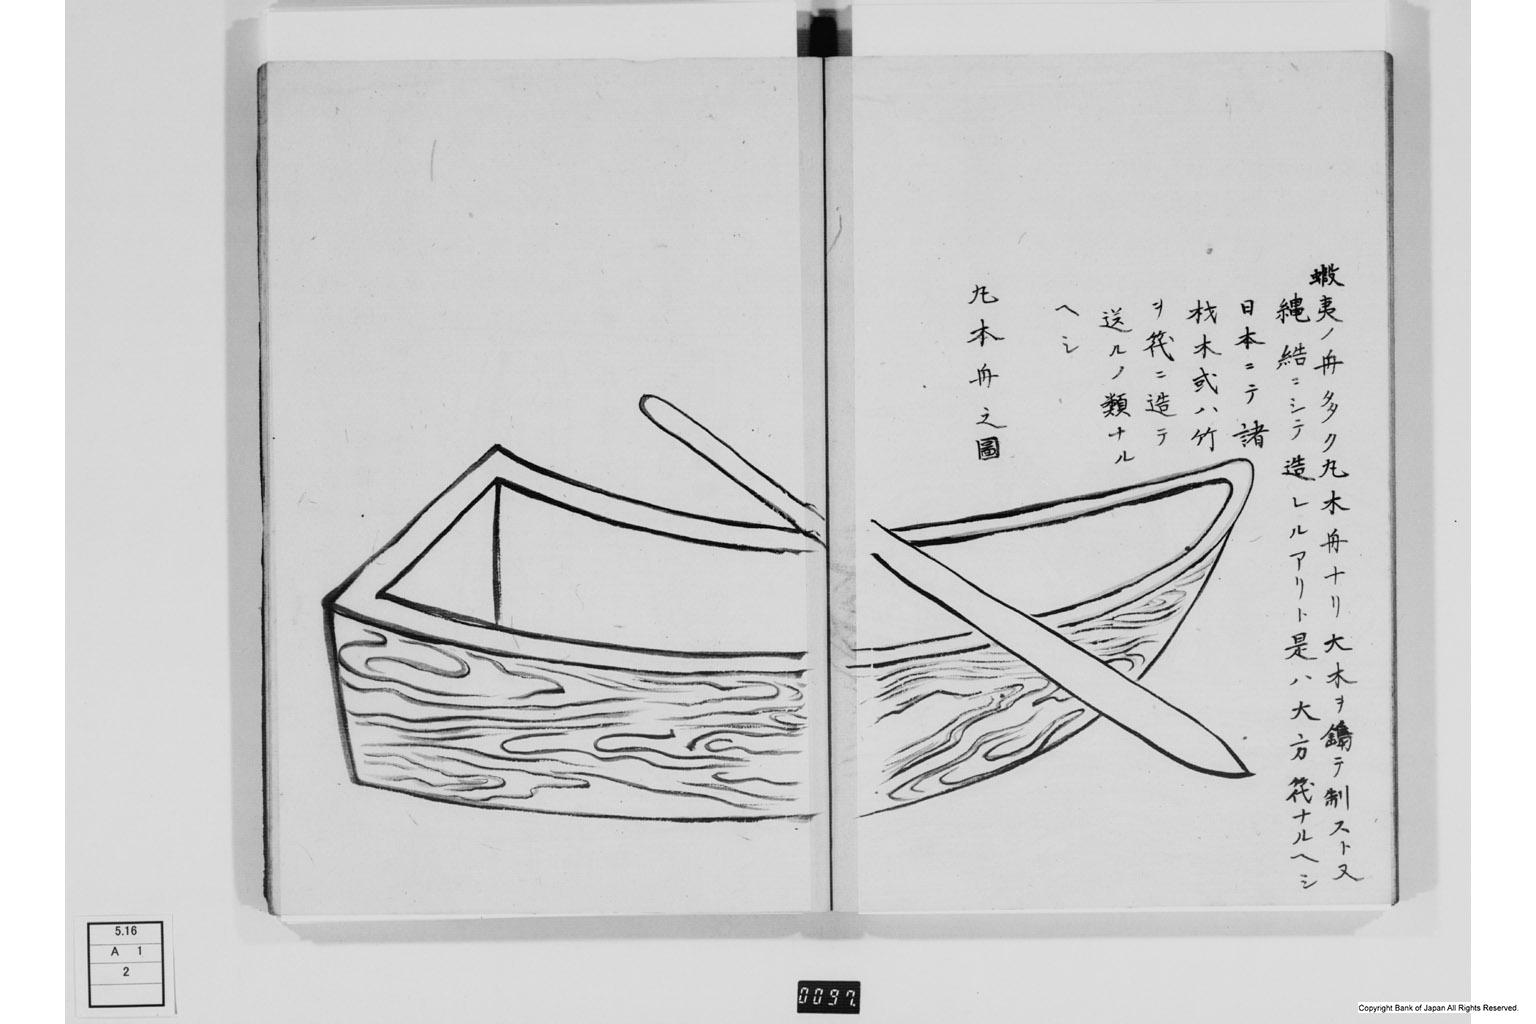 蝦夷ノ舟多ク丸木舟ナリ大木ヲ鐫テ制スト又
縄結ニシテ造レルアリト是ハ大方筏ナルヘシ
日本ニテ諸
材木或ハ竹
ヲ筏ニ造テ
送ルノ類ナル
ヘシ
丸木舟之圖
5.16
A 1
2
0097
Copyright Bank of Japan All Rights Reserved.